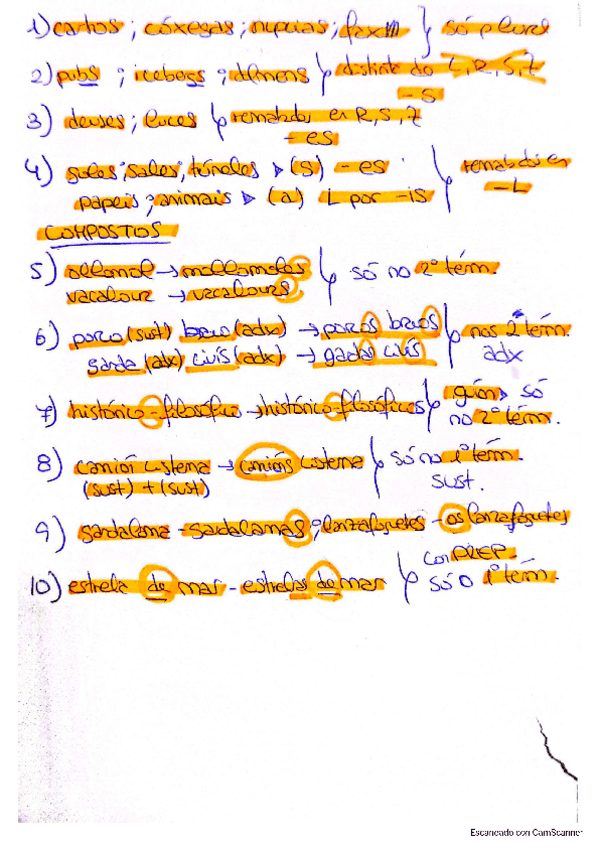 1) ; cóxegas; nupcias; } só plural
2) pubs ; icebergs ; dólmens } distinto de L, R, S, Z
- S
3) deuses; luces } rematados en R, S, Z
- es
4) goles; sales; túneles ▷ (s) - es } rematados en
papeis; animais ▷ (a) L por -is - L
COMPOSTOS
5) → só no 2º térm.
vacaloura → vacalouras
6) porco (sust) bravo (adx) → porcos bravos } nos 2 térm.
garda (adx) civís (adx) → gardas civís adx
7) histórico-filosófico → histórico-filosóficos } guión ▷ só
no 2º térm.
8) camión cisterna → camións cisterna } só no 1º térm.
(sust) + (sust) sust.
9) gardalama - gardalamas; lanzafoguetes - os lanzafoguetes
10) estrela de mar - estrelas de mar } con PREP.
só o 1º térm.
Escaneado con CamScanner